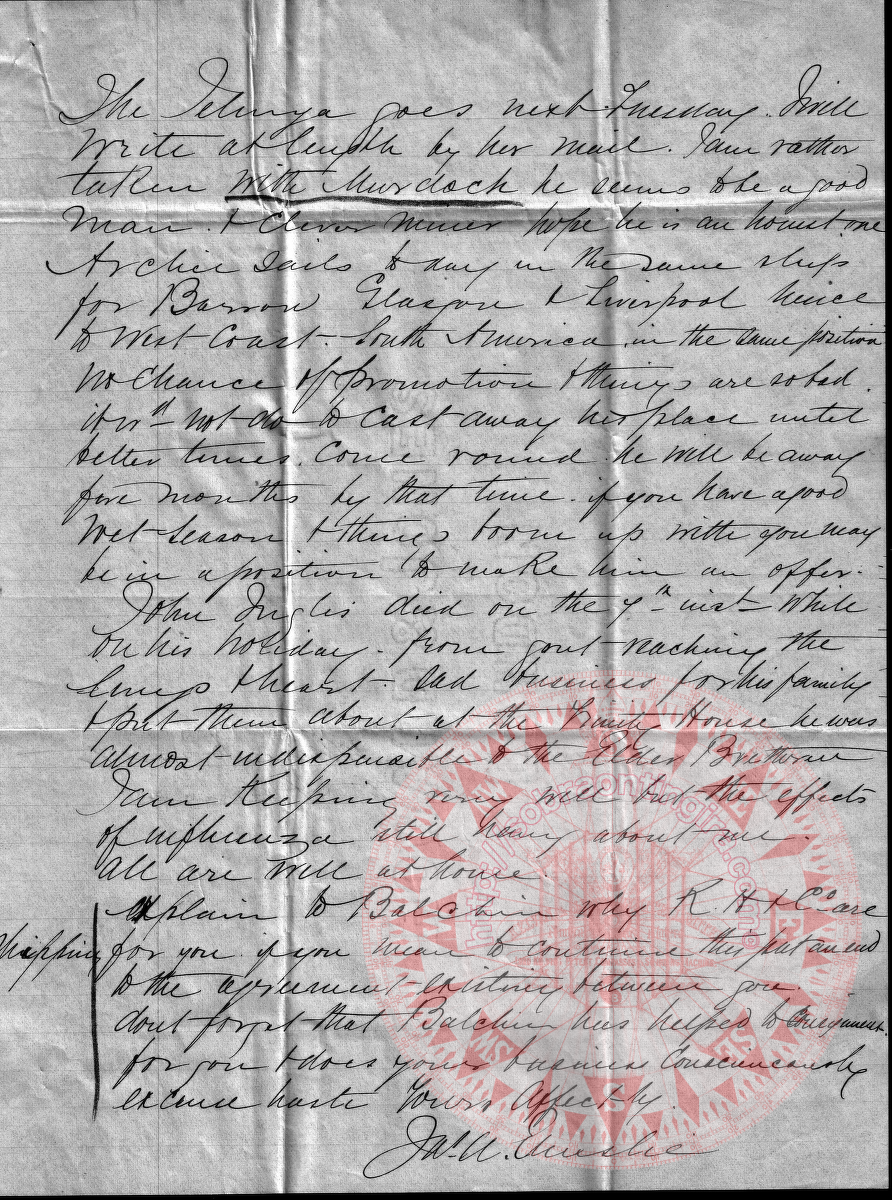 The Jelunga goes next Tuesday. I will
write at length by her mail. I am rather
taken with Murdoch he seems to be a good
man. & clever miner hope he is an honest one
Archie sails to day in the same ship
for Barrow Glasgow & Liverpool hence
to West Coast South America in the same position
no chance of promotion & things are so bad.
it wd not do to cast away his place until
better times. come round he will be away
five months by that time. if you have a good
wet season & things boom up with you may
be in a position to make him an offer.
John Inglis died on the 7th inst while
on his holiday. from gout reaching the
lungs & heart. sad business for his family
& put them about at the Trinity House he was
almost indispensible to the Elder Brethren
I am keeping very well but the effects
of influenza still hang about me.
all are well at home.
explain to Balchin why R. H & Co are
shipping for you. if you mean to continue this put an end
to the agreement existing between you
dont forget that Balchin has helped to consignments
for you & does your business conscienciously
excuse haste Yours Affectly
Jas. A. Ainslie
http://cobrapontingin.com.pg
NW
W
SW
S
SE